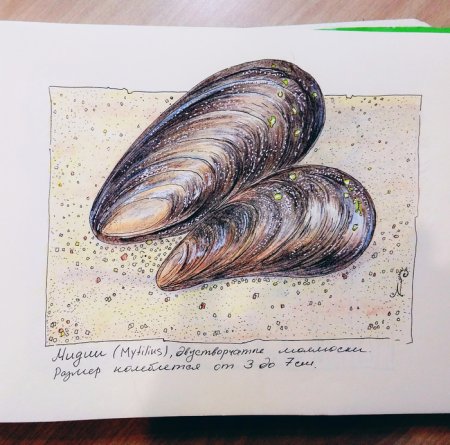 Мидии (Mytilius), двустворчатые моллюски.
Размер колеблется от 3 до 7см.